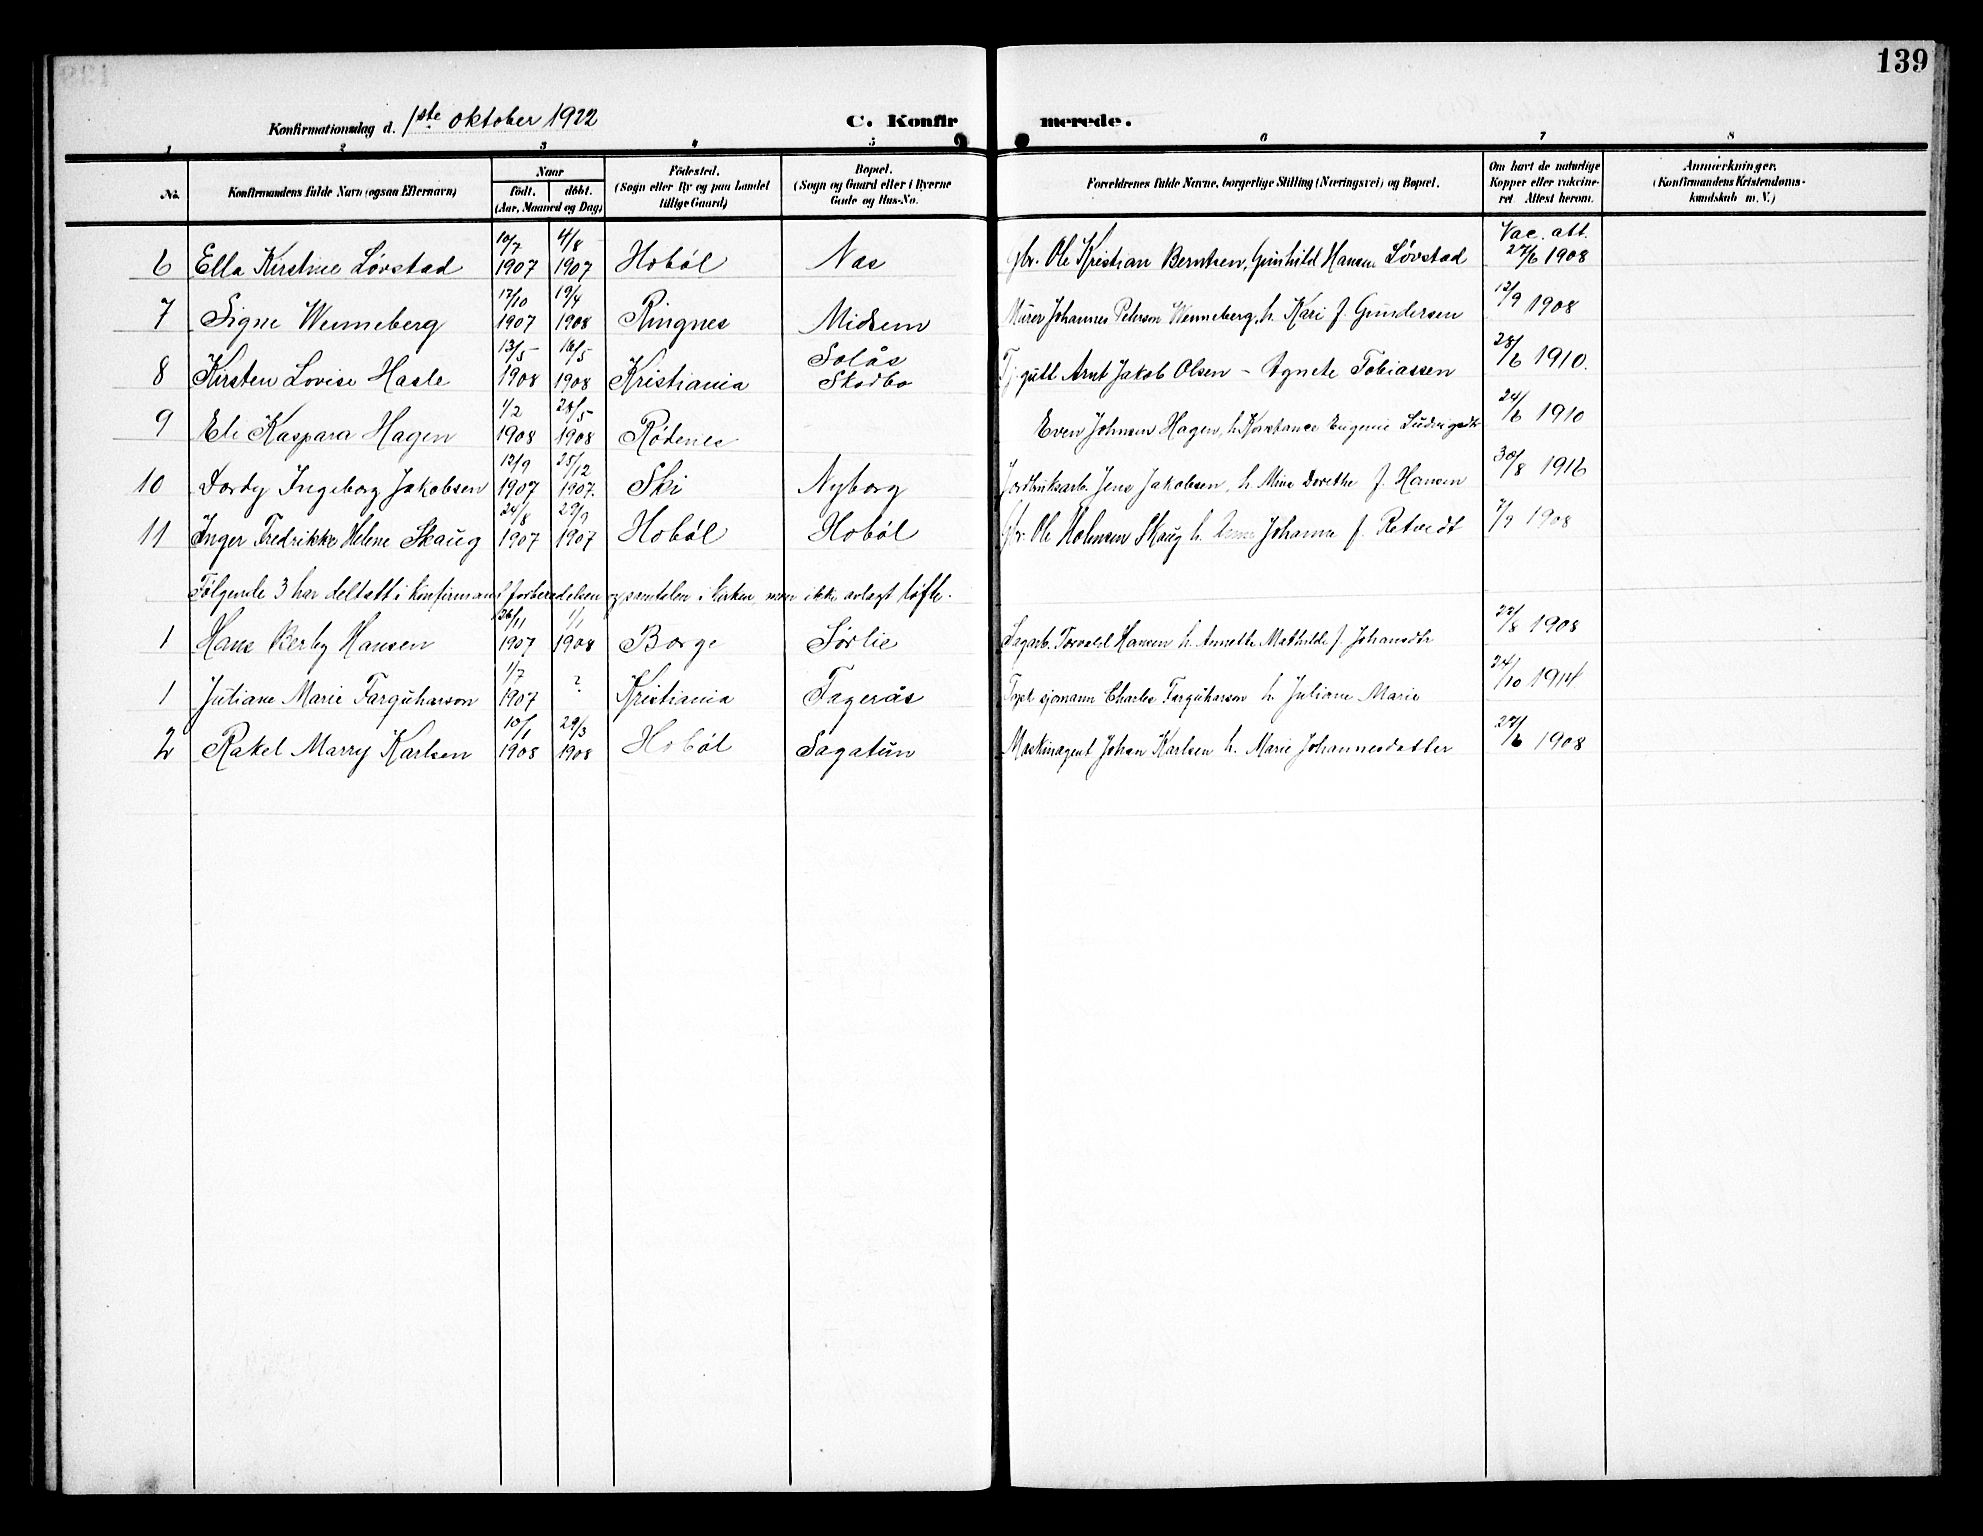 139
Konfirmationsdag d. 1ste oktober 1922 C. Konfirmerede.
1 2 3 4 5 6 7 8
No. Konfirmandens fulde Navn (ogsaa Efternavn) Naar født. døbt. (Aar, Maaned og Dag) Fødested. (Sogn eller By og paa Landet tillige Gaard) Bopæl. (Sogn og Gaard eller i Byerne Gade og Hus-No. Forældrenes fulde Navne, borgerlige Stilling (Næringsvei) og Bopæl. Om havt de naturlige Kopper eller vakcineret. Attest herom. Anmærkninger. (Konfirmandens Kristendomskundskab m. V.)
6 Ella Kirstine Løvstad 10/7 1907 4/8 1907 Hobøl Næs Gbr. Ole Kristian Berntsen, Gunhild Hansen Løvstad Vac. att. 27/6 1908
7 Signe Wenneberg 17/10 1907 19/4 1908 Ringnes Midsem Murer Johannes Peterson Wenneberg, h. Kari f. Gundersen 12/9 1908
8 Kirsten Lovise Hasle 13/5 1908 16/5 1908 Kristiania Solås Skodbo Arnt Jakob Olsen – Agnete Tobiassen 28/6 1910.
9 Eli Kaspara Hagen 1/2 1908 28/5 1908 Rødenes Even Johnsen Hagen, h. Konstance Eugenie Ludvigsdtr 24/6 1910
10 Dordy Ingeborg Jakobsen 12/9 1907 25/12 1907. Ski Nyborg Jordbruksarb. Jens Jakobsen, h. Mina Dorethe f. Hansen 30/8 1916
11 Inger Fredrikke Helene Skaug 24/8 1907 29/9 1907 Hobøl Hobøl Gbr. Ole Holmsen Skaug h. Johanna f. Retvedt 7/9 1908
Følgende 3 har deltatt i konfirmantforberedelsen og samtalen i kirken, men ikke avlagt løfte.
1 Hans Berby Hansen 26/11 1907 1/1 1908 Borge Sørlie Sagarb. Torvald Hansen h. Annette Mathilde f. Johansdtr 22/8 1908
1 Juliane Marie Farguharson 1/7 1907 ? Kristiania Fagerås sjømann Charles Farguharson h. Juliane Marie 24/10 1914
2 Rakel Marry Karlsen 10/1 1908 29/3 1908 Hobøl Sagatun Maskinagent Johan Karlsen h. Marie Johannesdatter 27/6 1908